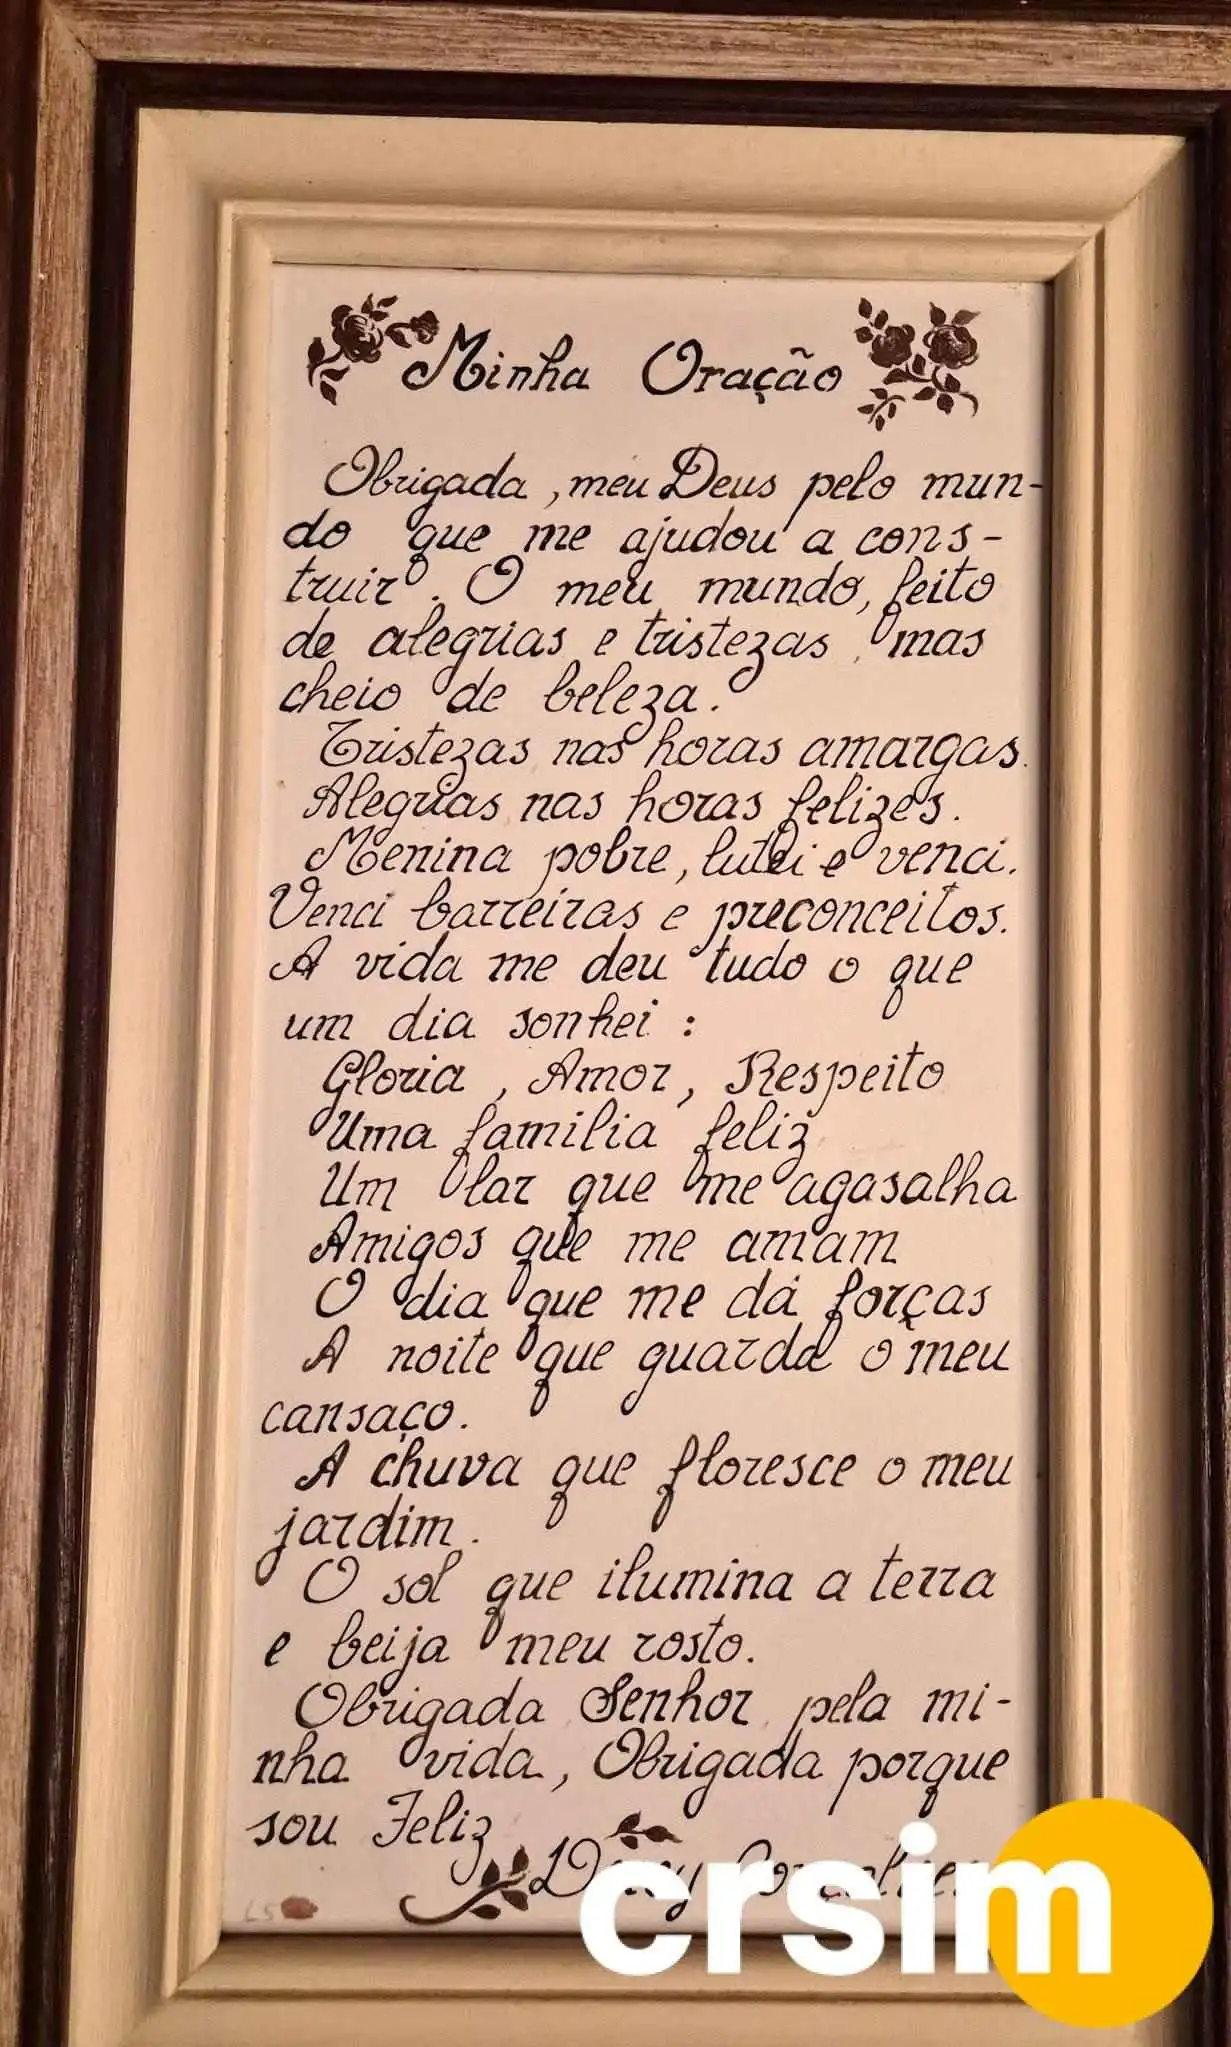 Minha Oração
Obrigada, meu Deus pelo mun-
do que me ajudou a cons-
truir. O meu mundo, feito
de alegrias e tristezas, mas
cheio de beleza.
Tristezas nas horas amargas.
Alegrias nas horas felizes.
Menina pobre, lutei e venci.
Venci barreiras e preconceitos.
A vida me deu tudo o que
um dia sonhei:
Gloria, Amor, Respeito
Uma familia feliz
Um lar que me agasalha
Amigos que me amam
O dia que me dá forças
A noite que guarda o meu
cansaço.
A chuva que floresce o meu
jardim.
O sol que ilumina a terra
e beija meu rosto.
Obrigada Senhor, pela mi-
nha vida, Obrigada porque
sou Feliz
crsim